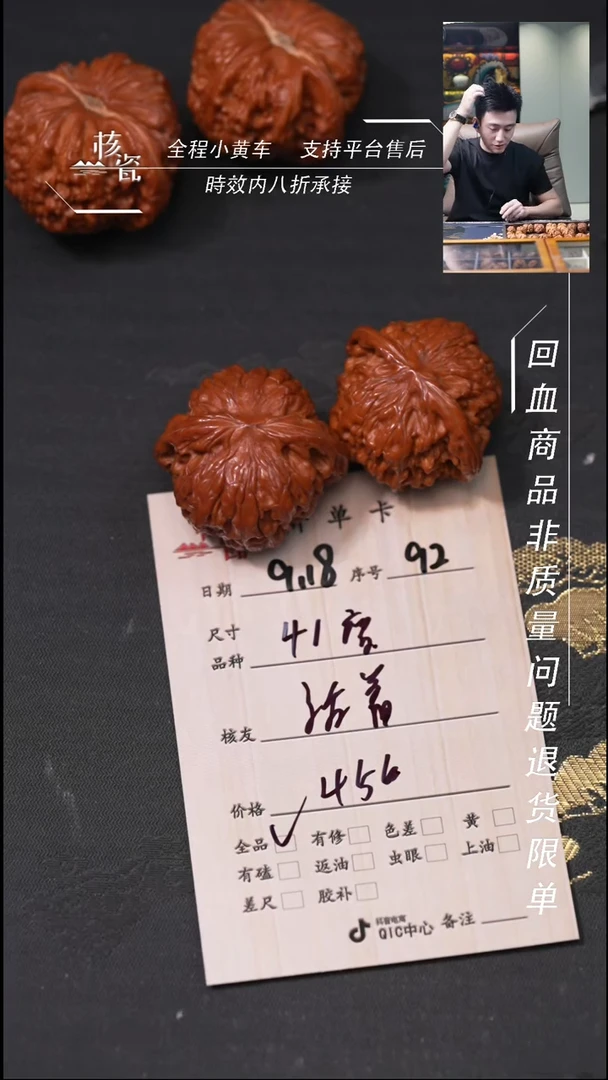 核瓷
全程小黄车 支持平台售后
時效内八折承接
回血商品非质量问题退货限单
单卡
日期 9.18 序号 92
尺寸 41
品种
核友
价格 456
全品 ✓ 有修 色差 黄
有磕 返油 虫眼 上油
差尺 胶补
抖音电商
QIC中心 备注